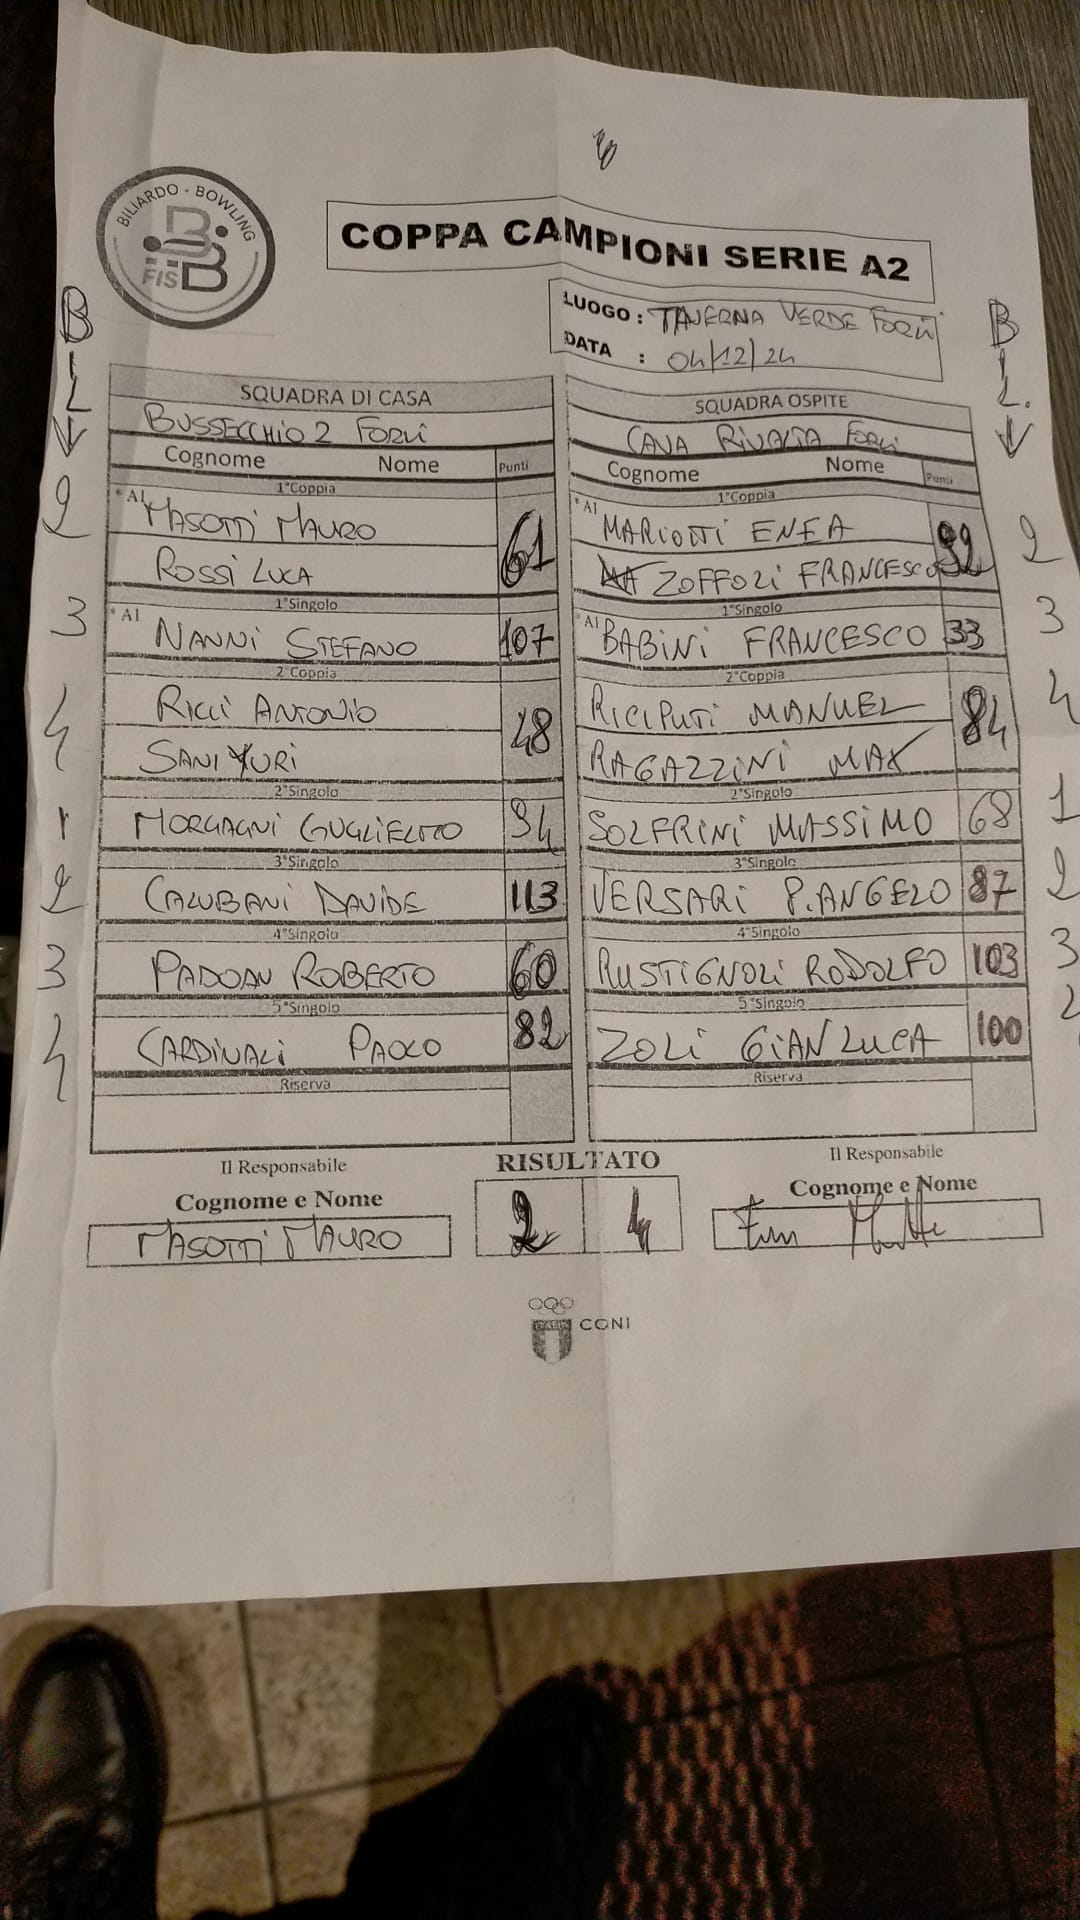 BILIARDO - BOWLING
FISBB
COPPA CAMPIONI SERIE A2
LUOGO : TAVERNA VERDE FORLÌ
DATA : 04/12/24
BIL
BIL.
SQUADRA DI CASA SQUADRA OSPITE
BUSSECCHIO 2 FORLÌ CAVA RIVALTA FORLÌ
Cognome Nome Punti Cognome Nome Punti
1°Coppia 1°Coppia
2 * A1 MASOTTI MAURO 61 * A1 MARIOTTI ENEA 92 2
ROSSI LUCA ZOFFOLI FRANCESCO
1°Singolo 1°Singolo
3 * A1 NANNI STEFANO 107 * A1 BABINI FRANCESCO 33 3
2°Coppia 2°Coppia
4 RICCI ANTONIO 48 RICIPUTI MANUEL 84 4
SANI YURI RAGAZZINI MAX
2°Singolo 2°Singolo
1 MORGAGNI GUGLIELMO 94 SOLFRINI MASSIMO 68 1
3°Singolo 3°Singolo
2 CALUBANI DAVIDE 113 VERSARI P.ANGELO 87 2
4°Singolo 4°Singolo
3 PADOAN ROBERTO 60 RUSTIGNOLI RODOLFO 103 3
5°Singolo 5°Singolo
4 CARDINALI PAOLO 82 ZOLI GIANLUCA 100
Riserva Riserva
Il Responsabile RISULTATO Il Responsabile
Cognome e Nome Cognome e Nome
MASOTTI MAURO 2 4
CONI